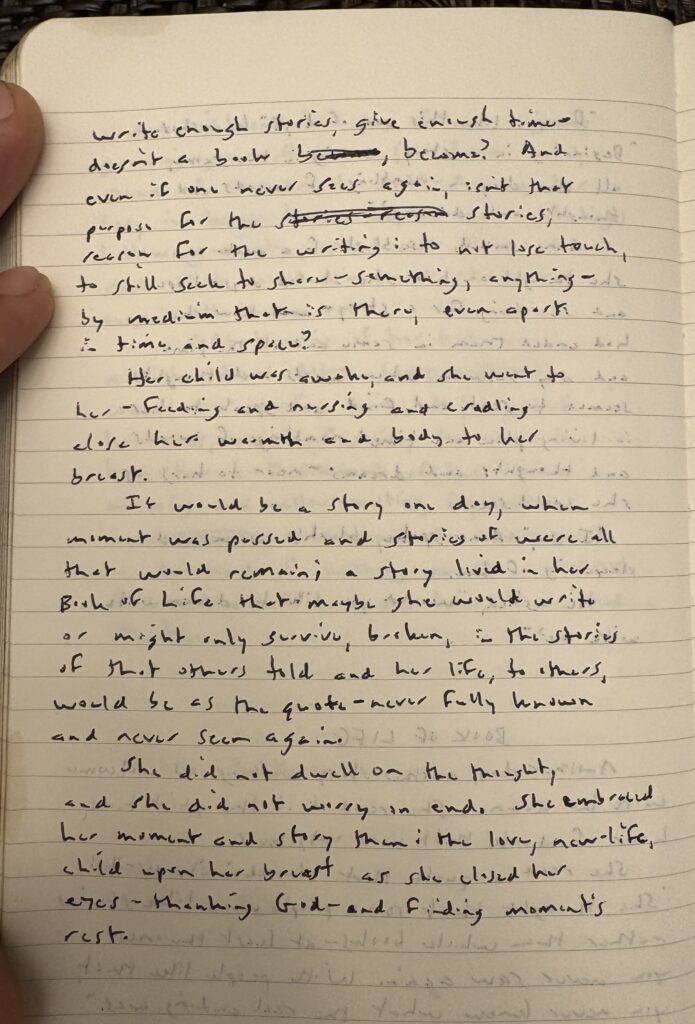 write enough stories, give enough time-
doesn't a book become, become? And
even if one never sees again, isn't that
purpose for the stories-reason stories,
reason for the writing: to not lose touch,
to still seek to share - something, anything -
by medium that is there, even apart
in time and space?
Her child was awake, and she went to
her - feeding and nursing and cradling
close her warmth and body to her
breast.
It would be a story one day, when
moment was passed and stories of were all
that would remain; a story lived in her
Book of Life that maybe she would write
or might only survive, broken, in the stories
of that others told and her life, to others,
would be as the quote - never fully known
and never seen again.
She did not dwell on the thought,
and she did not worry on end. She embraced
her moment and story then: the love, new-life,
child upon her breast as she closed her
eyes - thanking God - and finding moment's
rest.
BOOK OF LIFE